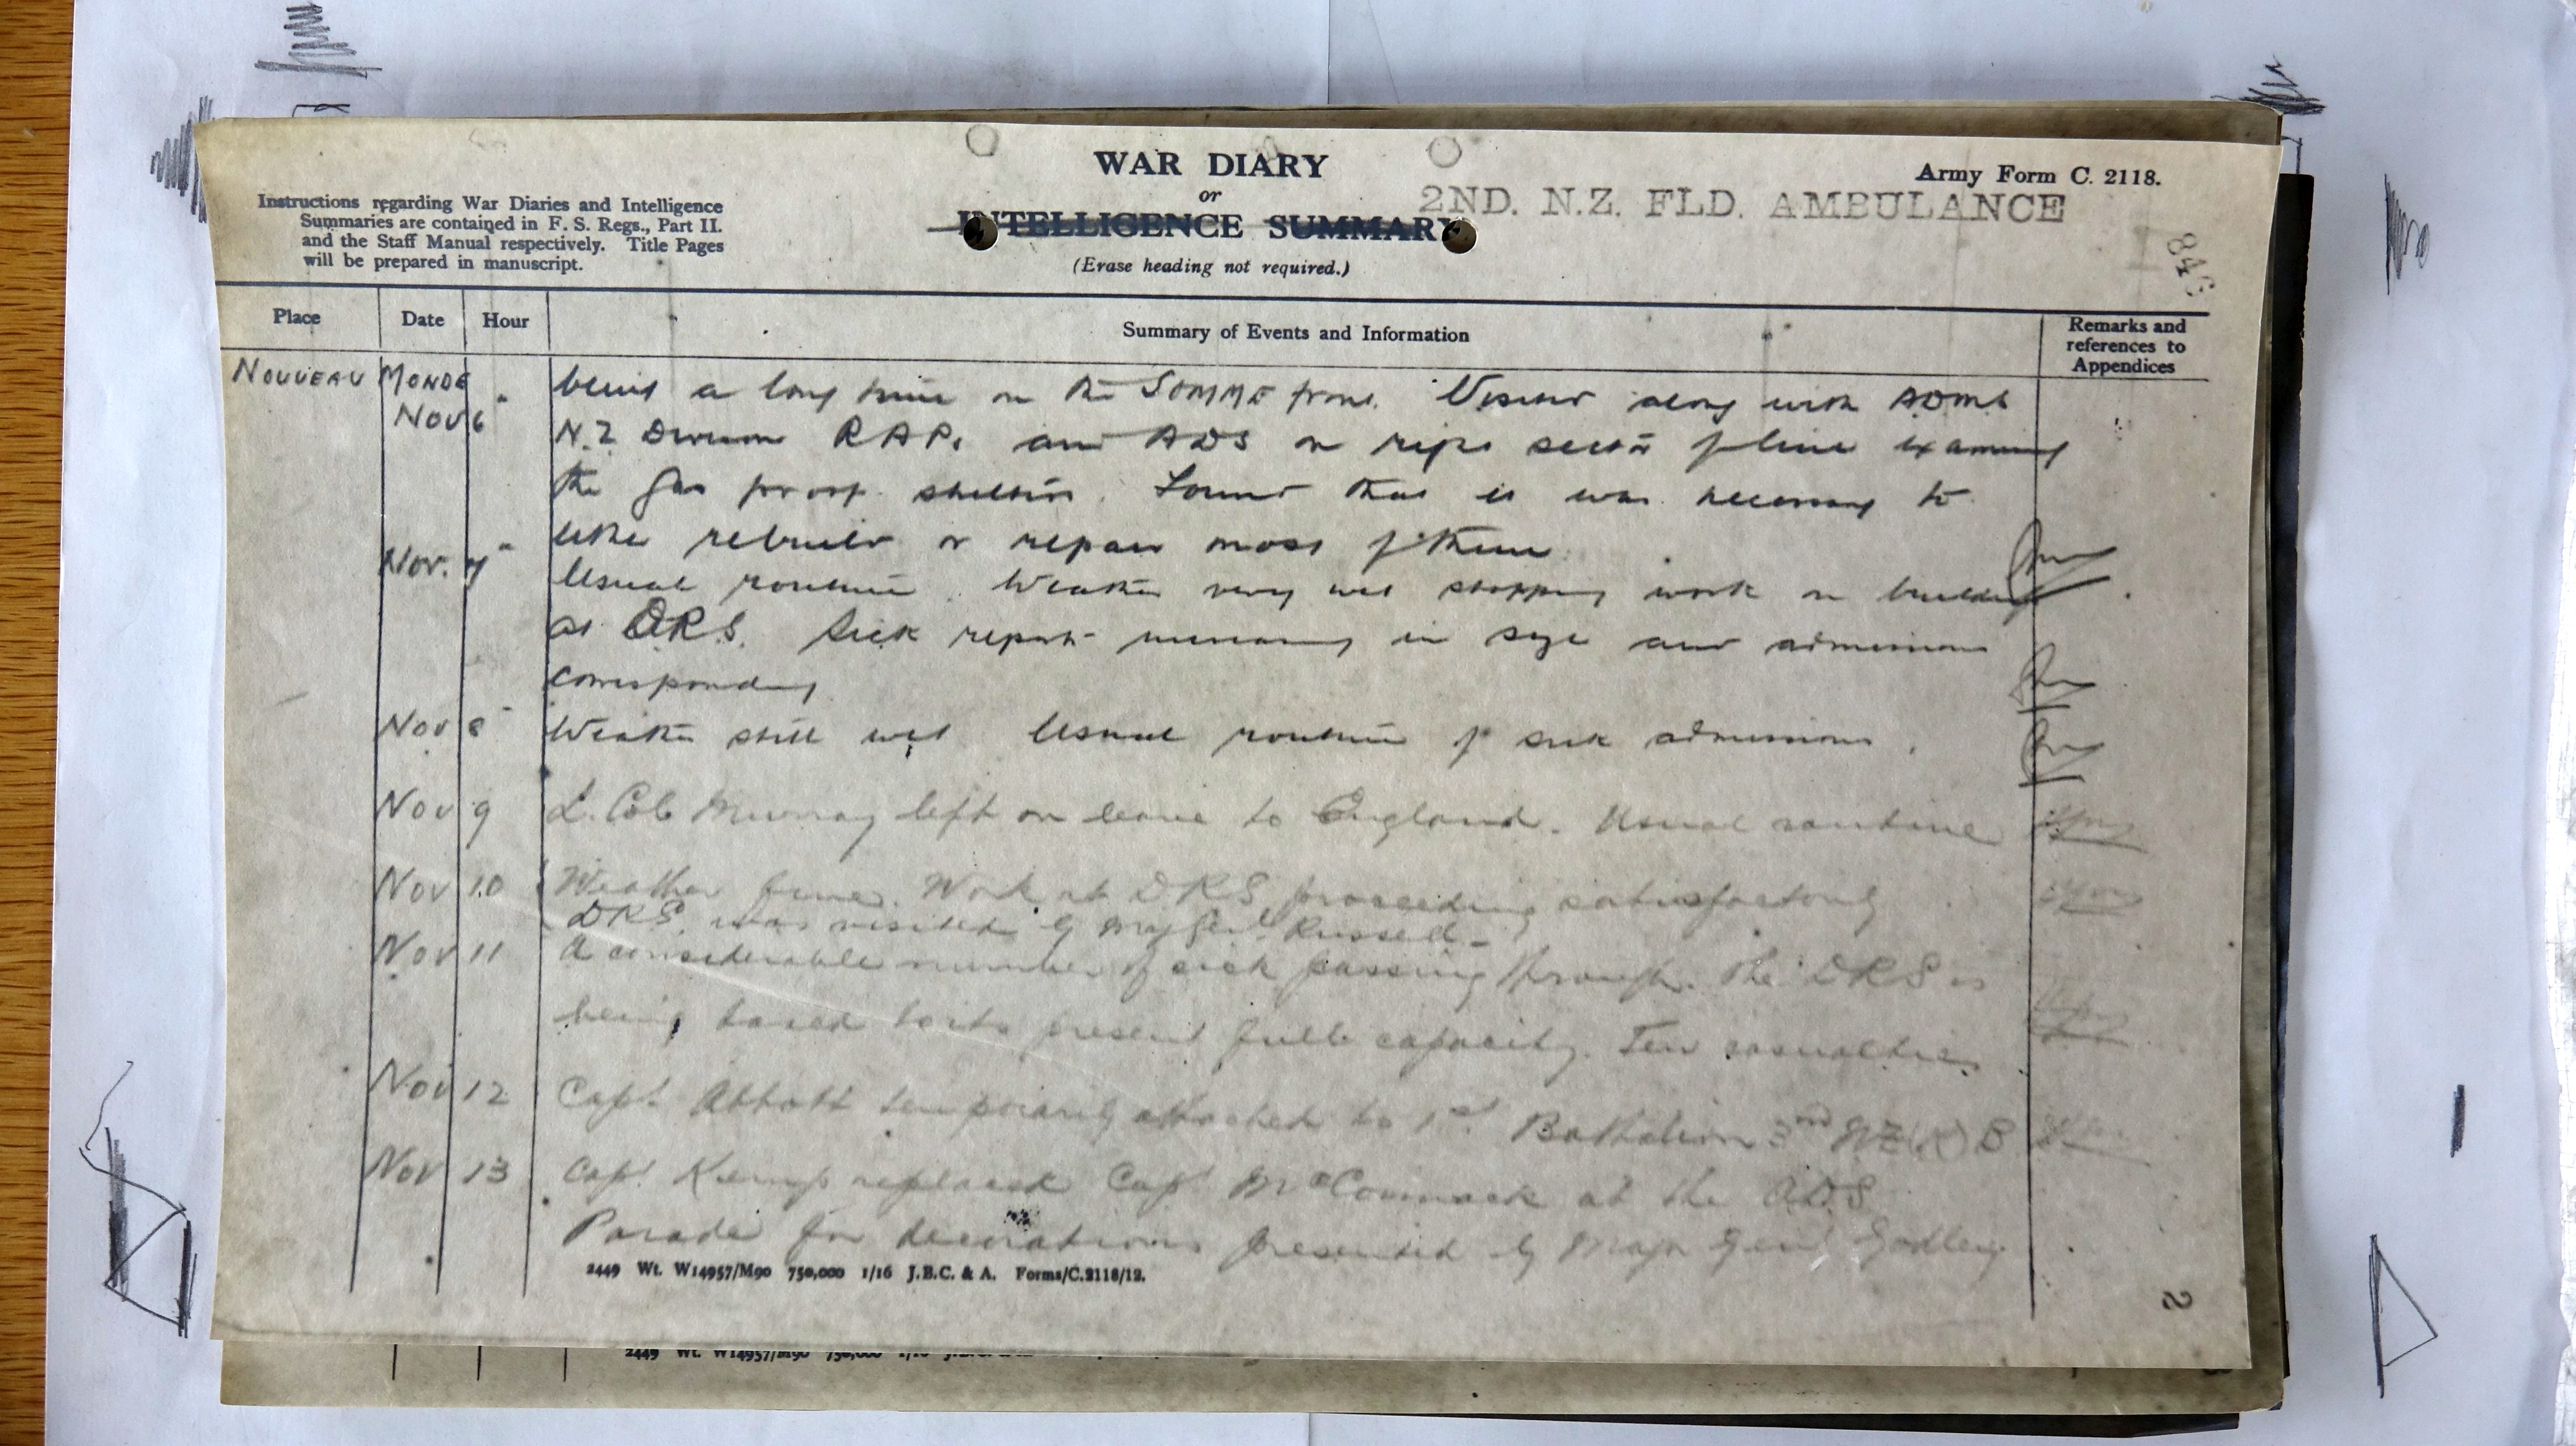 WAR DIARY
Army Form C. 2118.
or
2ND. N.Z. FLD. AMBULANCE
INTELLIGENCE SUMMARY
(Erase heading not required.)
Instructions regarding War Diaries and Intelligence
Summaries are contained in F. S. Regs., Part II.
and the Staff Manual respectively. Title Pages
will be prepared in manuscript.
846
Place Date Hour Summary of Events and Information Remarks and references to Appendices
NOUVEAU MONDE being a long time on the SOMME front. Visited along with ADMS
NOV 6 N.Z Division RAPs and ADS on right sector of line examining
the gas proof shelters. Found that it was necessary to
either rebuild or repair most of them
Nov. 7 Usual routine. Weather very wet stopping work on building
at DRS. Sick report increasing in size and admissions
corresponding
Nov 8 Weather still wet Usual routine of sick admissions.
Nov 9 L. Col Murray left on leave to England. Usual routine
Nov 10 Weather fine. Work at DRS. proceeding satisfactorily
DRS. was visited by Maj Genl. Russell -
Nov 11 A considerable number of sick passing through. The DRS is
being taxed to its present full capacity. Few casualties
Nov 12 Capt Abbott temporarily attached to 1st Battalion 3rd NZ(R)B
Nov 13 Capt Kemp replaced Capt McCormack at the ADS
Parade for decorations presented by Major Genl Godley
2449 Wt. W14957/M90 750,000 1/16 J.B.C. & A. Forms/C.2118/12.
2
2449 Wt. W14957/M90 750,000 1/16